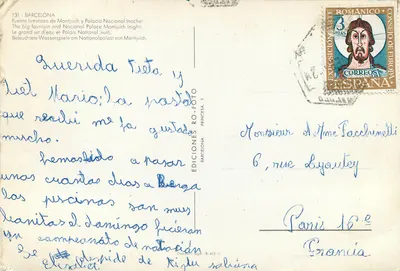 131 - BARCELONA
Fuente luminosa de Montjuich y Palacio Nacional (noche)
The big fountain and National Palace Montjuich (night).
Le grand jet d'eau et Palais National (nuit).
Querida Tieta y
tiet Mario; la postal
que recibí me ha gustado
mucho.
hemos ido a pasar
unos cuantos dias a Berga
las piscinas son muy
el domingo hicieron
un campeonato de natación
se despide de
EDICIONES RO-FOTO
BARCELONA
ESPAÑA
CORREOS
ROMANICO
3
Monsieur et Mme Facchinetti
6, rue Lyautey
Paris 16e
Francia